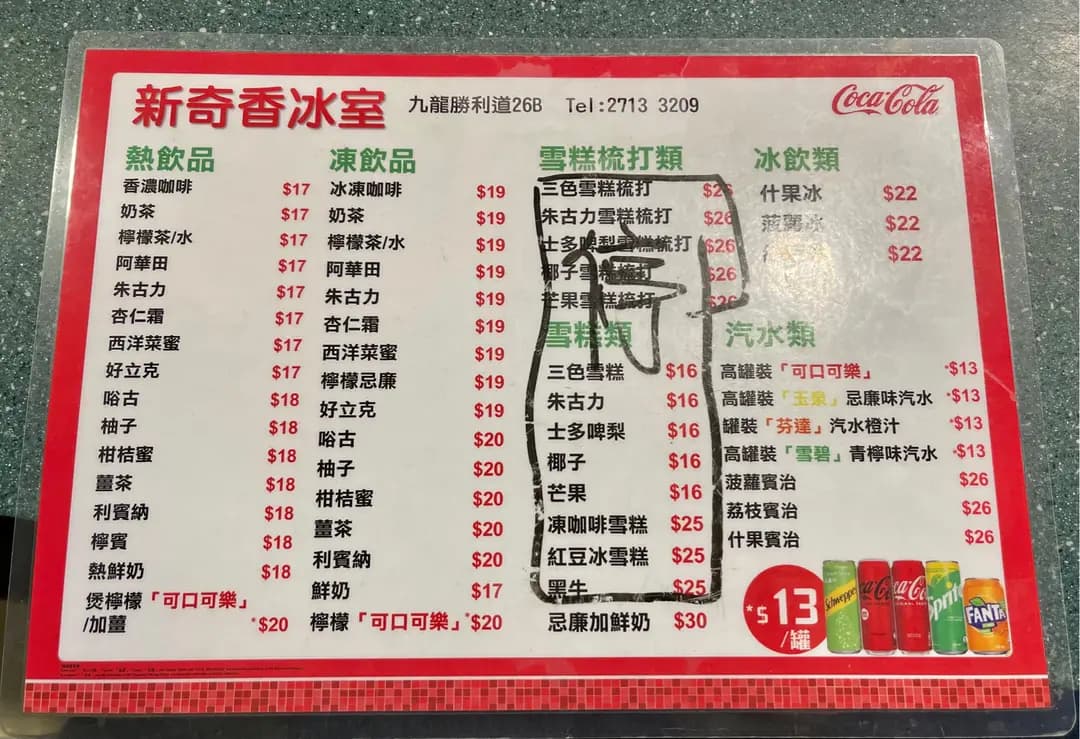 新奇香冰室 九龍勝利道26B Tel:2713 3209
Coca-Cola
熱飲品
香濃咖啡 $17
奶茶 $17
檸檬茶/水 $17
阿華田 $17
朱古力 $17
杏仁霜 $17
西洋菜蜜 $17
好立克 $17
唂古 $18
柚子 $18
柑桔蜜 $18
薑茶 $18
利賓納 $18
檸賓 $18
熱鮮奶 $18
煲檸檬「可口可樂」
/加薑 *$20
凍飲品
冰凍咖啡 $19
奶茶 $19
檸檬茶/水 $19
阿華田 $19
朱古力 $19
杏仁霜 $19
西洋菜蜜 $19
檸檬忌廉 $19
好立克 $19
唂古 $20
柚子 $20
柑桔蜜 $20
薑茶 $20
利賓納 $20
鮮奶 $17
檸檬「可口可樂」*$20
雪糕梳打類
三色雪糕梳打 $26
朱古力雪糕梳打 $26
士多啤梨雪糕梳打 $26
椰子雪糕梳打 $26
芒果雪糕梳打 $26
停
雪糕類
三色雪糕 $16
朱古力 $16
士多啤梨 $16
椰子 $16
芒果 $16
凍咖啡雪糕 $25
紅豆冰雪糕 $25
黑牛 $25
忌廉加鮮奶 $30
冰飲類
什果冰 $22
菠蘿冰 $22
$22
汽水類
高罐裝「可口可樂」 *$13
高罐裝「玉泉」忌廉味汽水 *$13
罐裝「芬達」汽水橙汁 *$13
高罐裝「雪碧」青檸味汽水 *$13
菠蘿賓治 $26
荔枝賓治 $26
什果賓治 $26
*$13
/罐
Schweppes
Coca-Cola
Coca-Cola
Sprite
FANTA